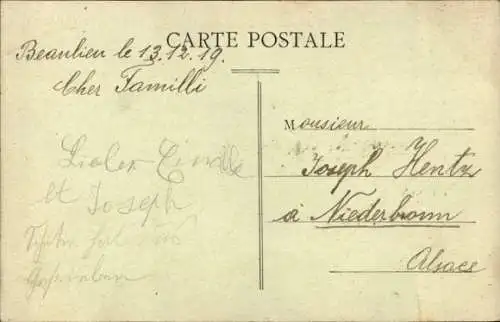 CARTE POSTALE
Beaulieu le 13.12.19.
Cher Familli
Lieber
et Joseph
Geschrieben
Monsieur
Joseph Hentz
à Niederbronn
Alsace